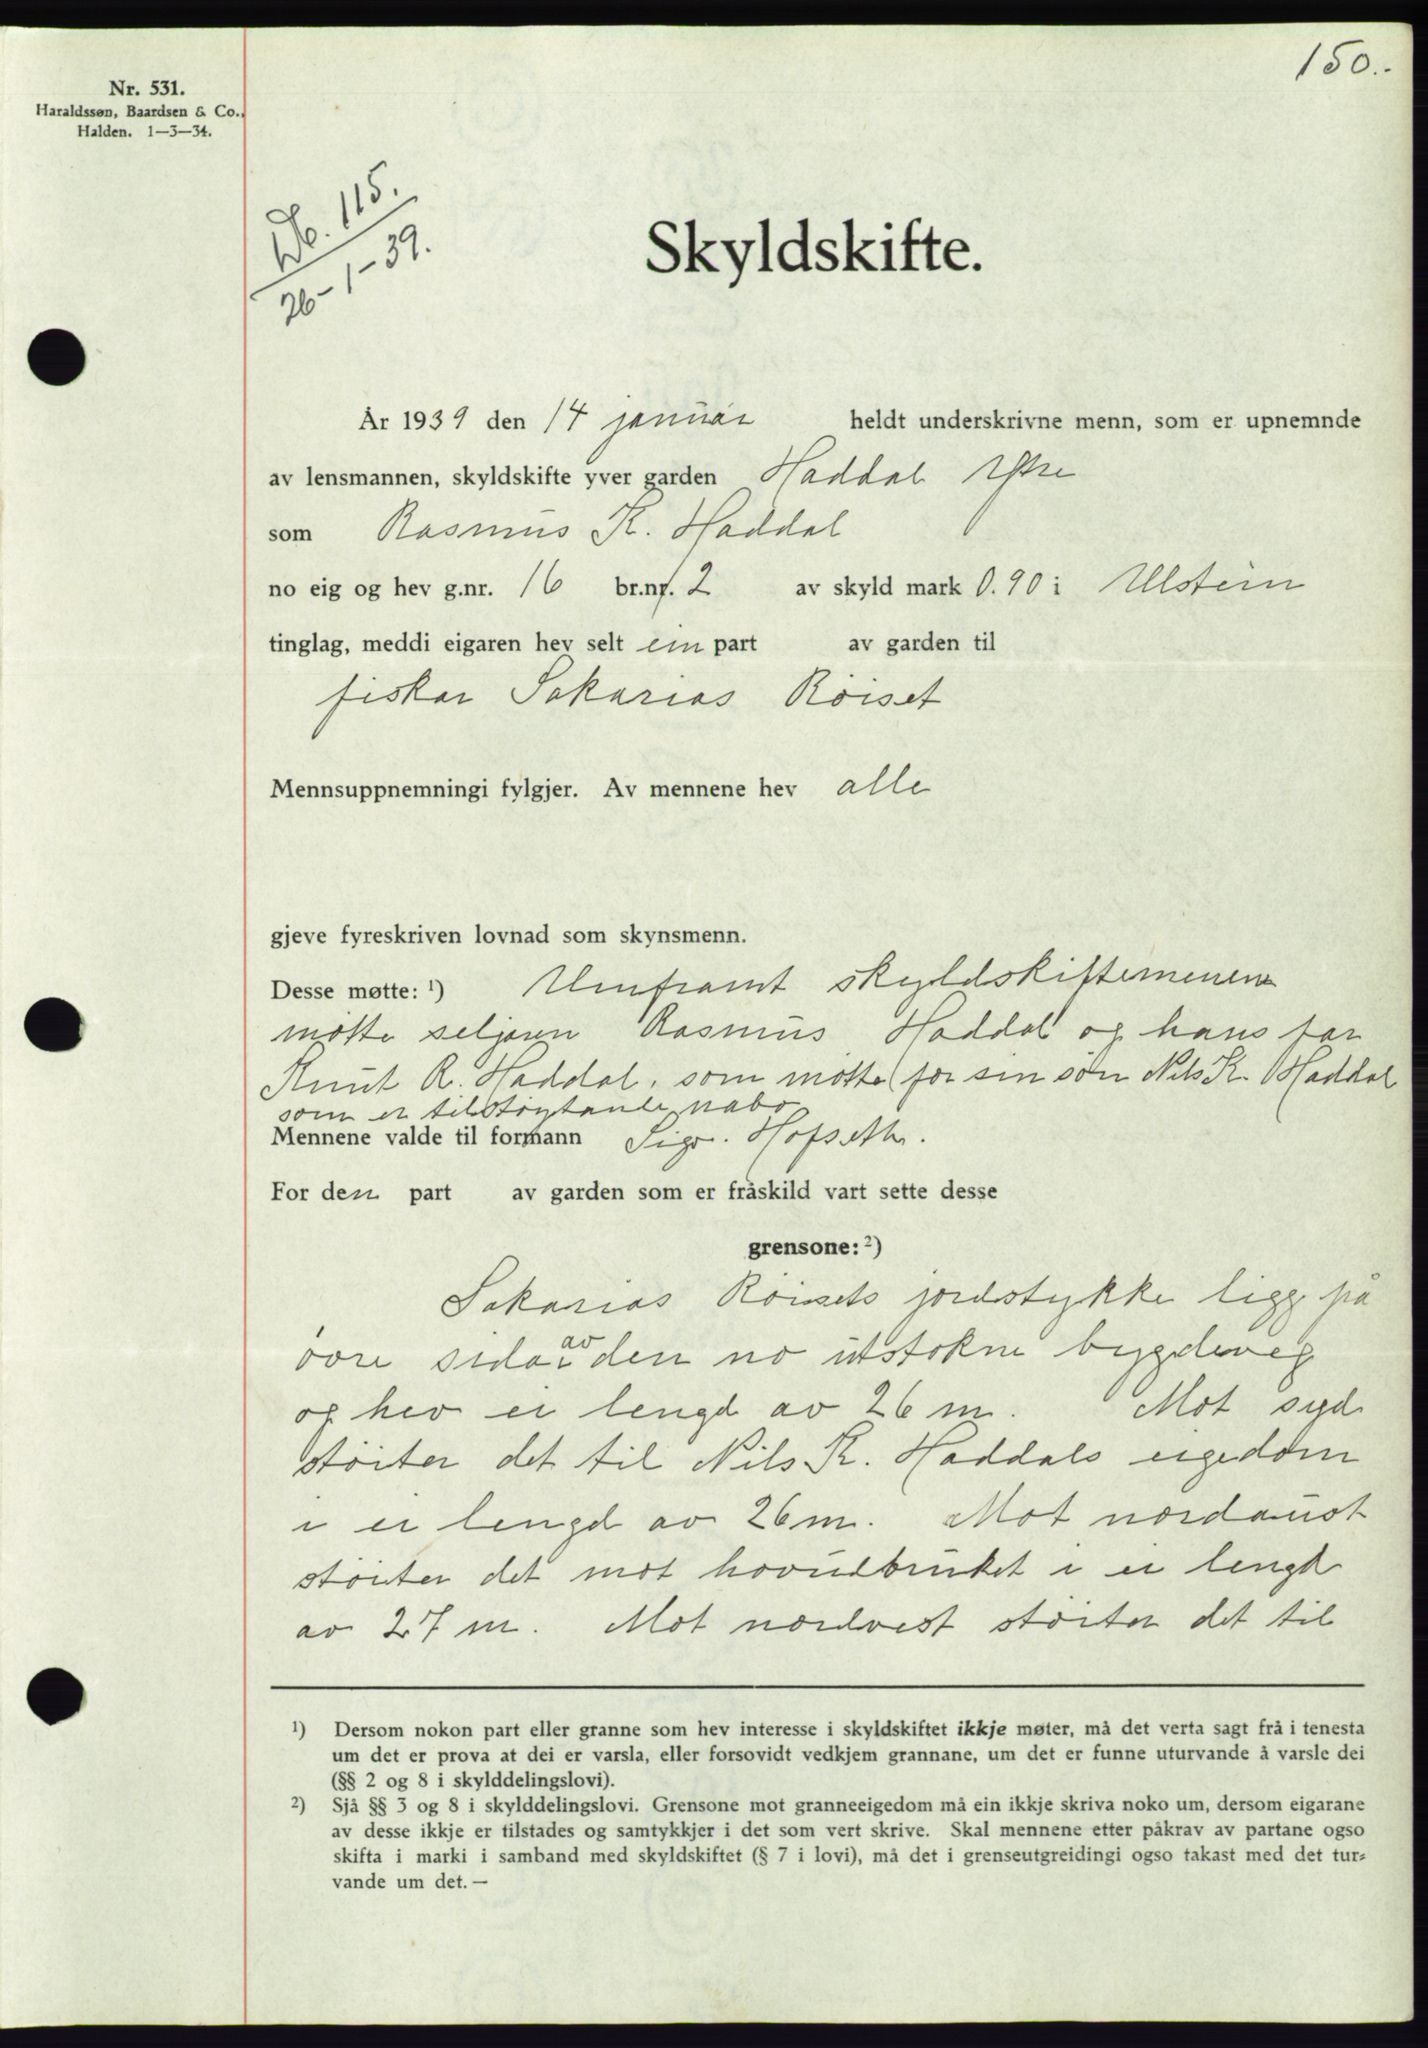 150.-
Nr. 531.
Haraldssøn, Baardsen & Co.,
Halden. 1—3—34.
Db. 115.
26-1-39.
Skyldskifte.
År 1939 den 14 januar heldt underskrivne menn, som er upnemnde
av lensmannen, skyldskifte yver garden Haddal Ytre
som Rasmus K. Haddal
no eig og hev g.nr. 16 br.nr. 2 av skyld mark 0.90 i Ulstein
tinglag, meddi eigaren hev selt ein part av garden til
fiskar Sakarias Röiset
Mennsuppnemningi fylgjer. Av mennene hev alle
gjeve fyreskriven lovnad som skynsmenn.
Desse møtte: ¹) Umframt skyldskiftemenene
møtte seljaren Rasmus Haddal og hans far
Knut R. Haddal, som møtte for sin søn Nils K. Haddal
som er tilstøytande nabo
Mennene valde til formann Sigv. Hofseth.
For den part av garden som er fråskild vart sette desse
grensone: ²)
Sakarias Röisets jordstykke ligg på
övre sida av den no utstokne bygdeveg
og hev ei lengd av 26 m. Mot syd
støiter det til Nils K. Haddals eigedom
i ei lengd av 26 m. Mot nordaust
støiter det mot hovudbruket i ei lengd
av 27 m. Mot nordvest støiter det til
¹) Dersom nokon part eller granne som hev interesse i skyldskiftet ikkje møter, må det verta sagt frå i tenesta
um det er prova at dei er varsla, eller forsovidt vedkjem grannane, um det er funne uturvande å varsle dei
(§§ 2 og 8 i skylddelingslovi).
²) Sjå §§ 3 og 8 i skylddelingslovi. Grensone mot granneeigedom må ein ikkje skriva noko um, dersom eigarane
av desse ikkje er tilstades og samtykkjer i det som vert skrive. Skal mennene etter påkrav av partane ogso
skifta i marki i samband med skyldskiftet (§ 7 i lovi), må det i grenseutgreidingi ogso takast med det tur-
vande um det. —